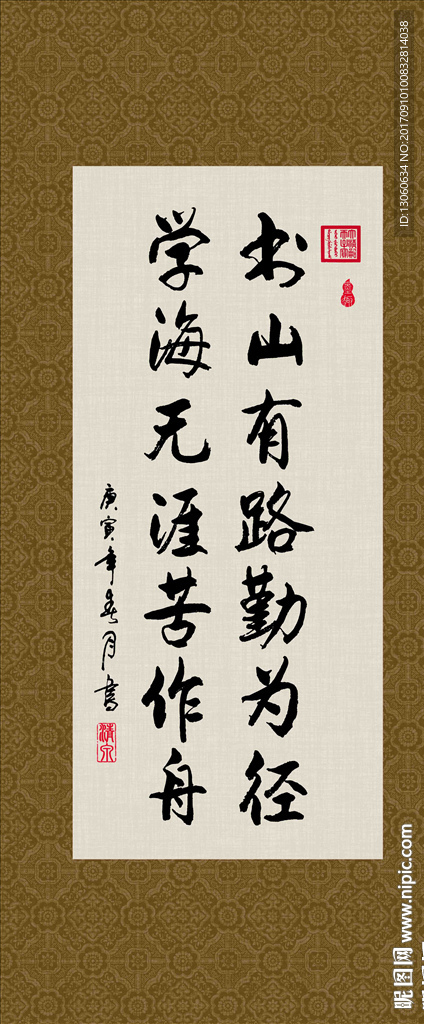 书山有路勤为径
学海无涯苦作舟
庚寅年春月書
清泉
ID:13060634 NO:20170910100832814038
昵图网 www.nipic.com